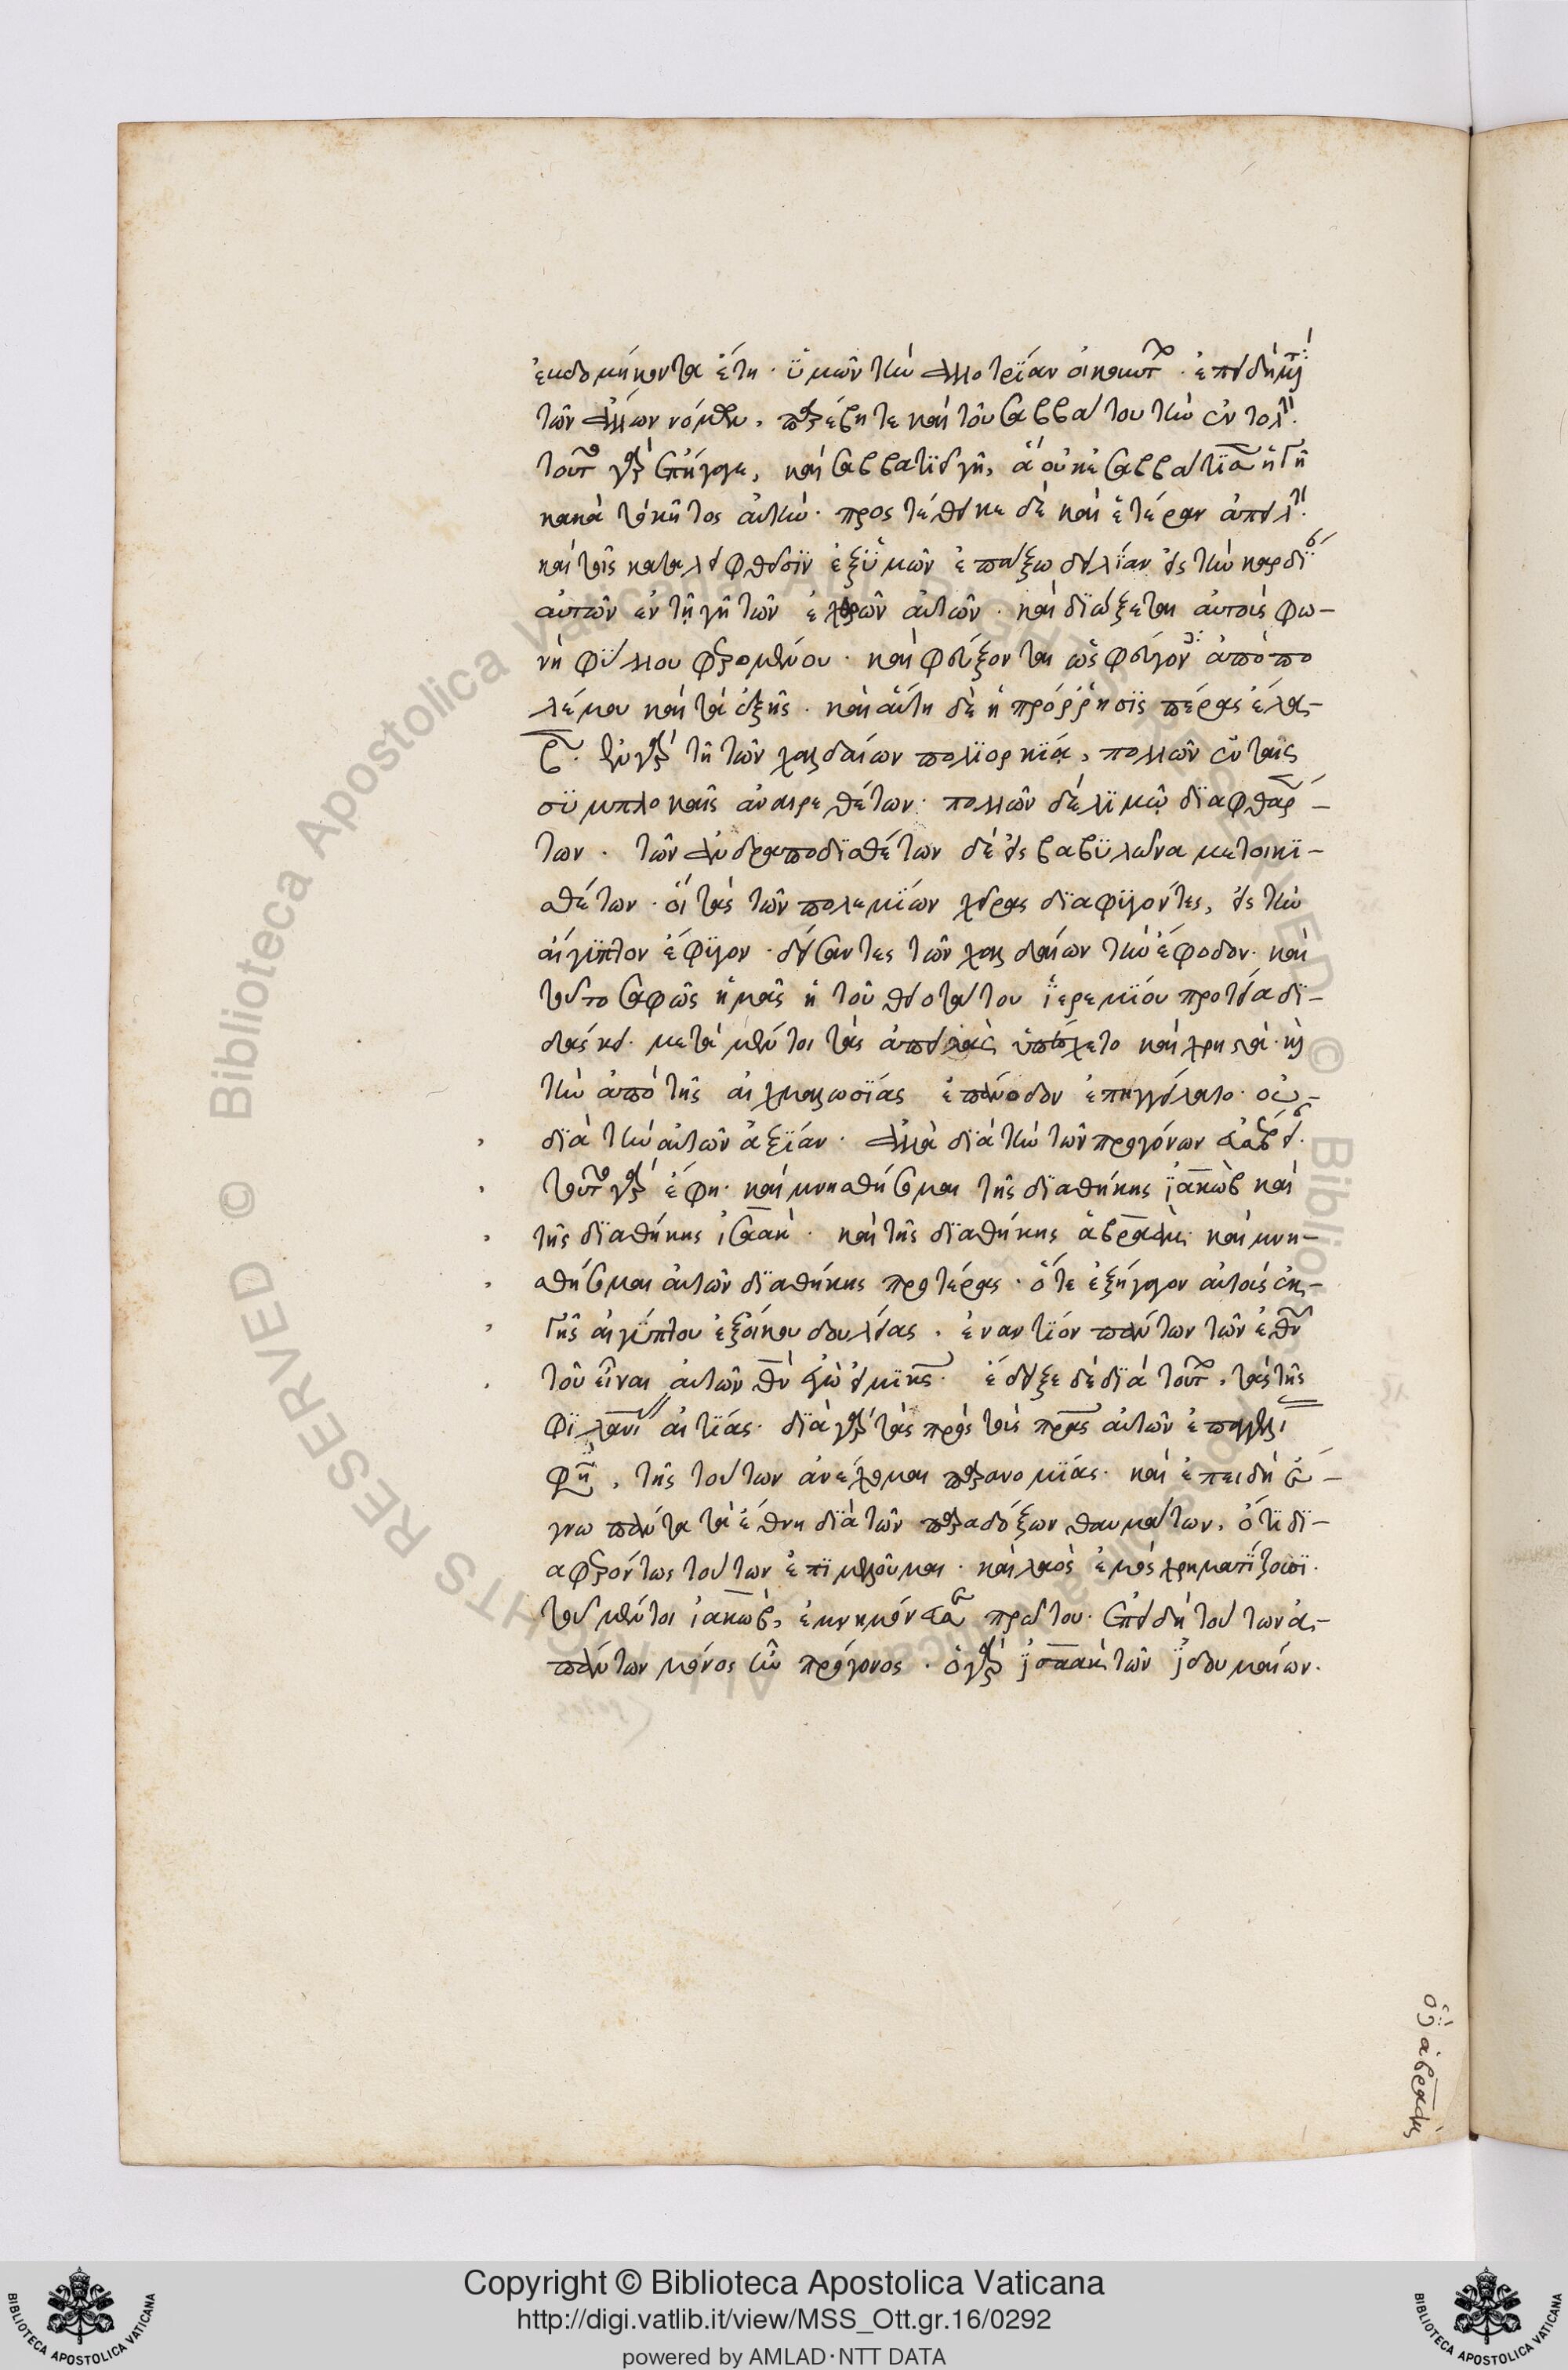 ἑκδομήκοντα ἔτη · ὑμῶν τὴν ἀλλοτρίαν οἰκουντ · ἐπειδὴ μ
τῶν ἄλλων νόμων, παρέβητε καὶ τοῦ σαββάτου τὴν ἐντολ
τοῦτ γὰρ ἐπήγαγε, καὶ σαββατιεῖ γῆ, ἃ οὐκ ἐσαββάτισ ἡ γῆ
κακὰ τὸ κῆτος αὐτὴν · προστέθεικε δὲ καὶ ἑτέραν ἀπειλ
καὶ τοῖς καταλειφθεῖσιν ἐξ ὑμῶν ἐπάξω δειλίαν εἰς τὴν καρδί
αὐτῶν ἐν τῇ γῇ τῶν ἐχθρῶν αὐτῶν · καὶ διώξεται αὐτοὺς φω-
νὴ φύλλου φερομένου · καὶ φεύξονται ὡς φεύγον ἀπὸ πο
λέμου καὶ τὰ ἑξῆς · καὶ αὕτη δὲ ἡ πρόρρησις πέρας ἔλα-
β · ἐν γὰρ τῇ τῶν χαλδαίων πολιορκίᾳ, πολλῶν ἐν ταῖς
συμπλοκαῖς ἀναιρεθέτων · πολλῶν δὲ λιμῷ διαφθαρ-
των · τῶν ἀνδραποδισθέτων δὲ εἰς βαβυλῶνα μετοικι-
σθέτων · οἱ τὰς τῶν πολεμίων χεῖρας διαφυγόντες, εἰς τὴν
αἴγυπτον ἔφυγον · δείσαντες τῶν χαλδαίων τὴν ἔφοδον · καὶ
τοῦτο σαφῶς ἡμᾶς ἡ τοῦ θειοτάτου ἱερεμίου προφ διδ-
δάσκει · μετὰ μέντοι τὰς ἀπειλὰς ὑπέσχετο καὶ χρηστὰ · κ
τὴν ἀπὸ τῆς αἰχμαλωσίας ἐπάνοδον ἐπηγγείλατο · οὐ-
διὰ τὴν αὐτῶν ἀξίαν · ἀλλὰ διὰ τὴν τῶν προγόνων εὐσέβει
τοῦτ γὰρ ἔφη · καὶ μνησθήσομαι τῆς διαθήκης ἰακὼβ καὶ
τῆς διαθήκης ἰσαάκ · καὶ τῆς διαθήκης ἀβραάμ · καὶ μνη-
σθήσομαι αὐτῶν διαθήκης προτέρας · ὅτε ἐξήγαγον αὐτοὺς ἐκ
γῆς αἰγύπτου ἐξ οἴκου δουλείας · ἐναντίον πάντων τῶν ἐθν
τοῦ εἶναι αὐτῶν θν ἐγώ εἰμι κς · ἔδειξε δὲ διὰ τοῦτ, τὰς τῆς
φιλανί αἰτίας · διὰ γὰρ τὰς πρὸς τοὺς πρας αὐτῶν ἐπαγγελί
φη, τῆς τούτων ἀνέχομαι παρανομίας · καὶ ἐπειδὴ ἔ-
γνω πάντα τὰ ἔθνη διὰ τῶν παραδόξων θαυμάτων, ὅτι δι-
αφερόντως τούτων ἐπιμελοῦμαι · καὶ λαὸς ἐμὸς χρηματίζουσι ·
τοῦ μέντοι ἰακώβ, ἐμνημόνευσ πρώτου · ἐπειδὴ τούτων ἁ-
πάντων μόνος ἦν πρόγονος · ὁ γὰρ ἰσαὰκ τῶν ἰδουμαίων ·
ὁ δὲ ἀβραὰμ
Copyright © Biblioteca Apostolica Vaticana
http://digi.vatlib.it/view/MSS_Ott.gr.16/0292
powered by AMLAD·NTT DATA